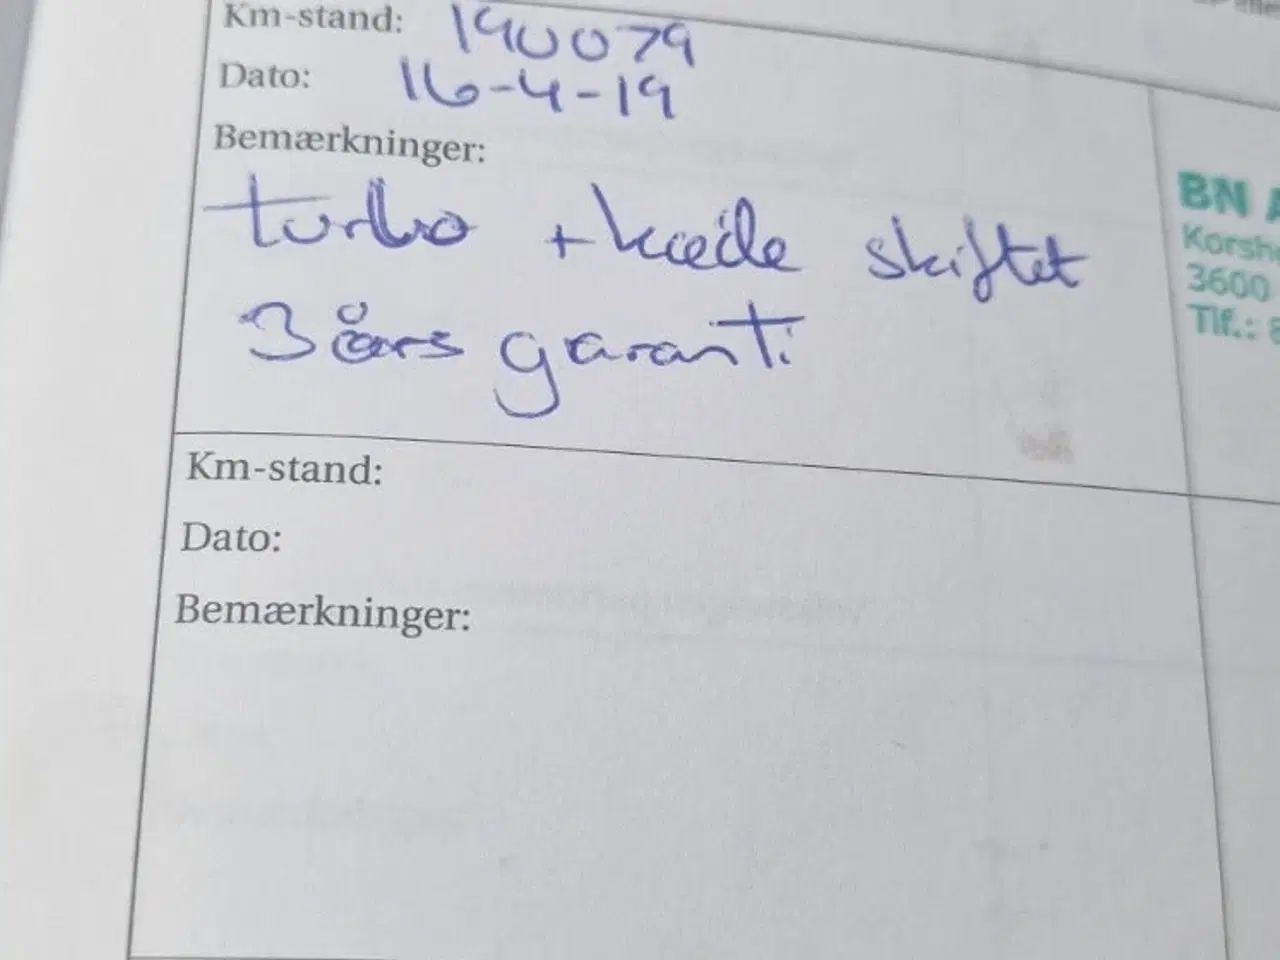 Km-stand: 190079
Dato: 16-4-19
Bemærkninger:
turbo + kæde skiftet
3 års garanti
BN
Korsh
3600
Tlf.: 8
Km-stand:
Dato:
Bemærkninger: